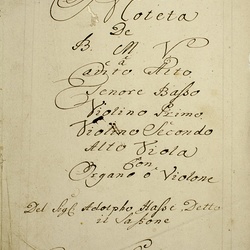 Moteta
De
B. M. V.
a
Canto Alto
Tenore Basso
Violino Primo
Violino Secondo
Alto Viola
Con
Organo ò Violone
Del Sigl. Adolpho Hasse Detto
il Sassone